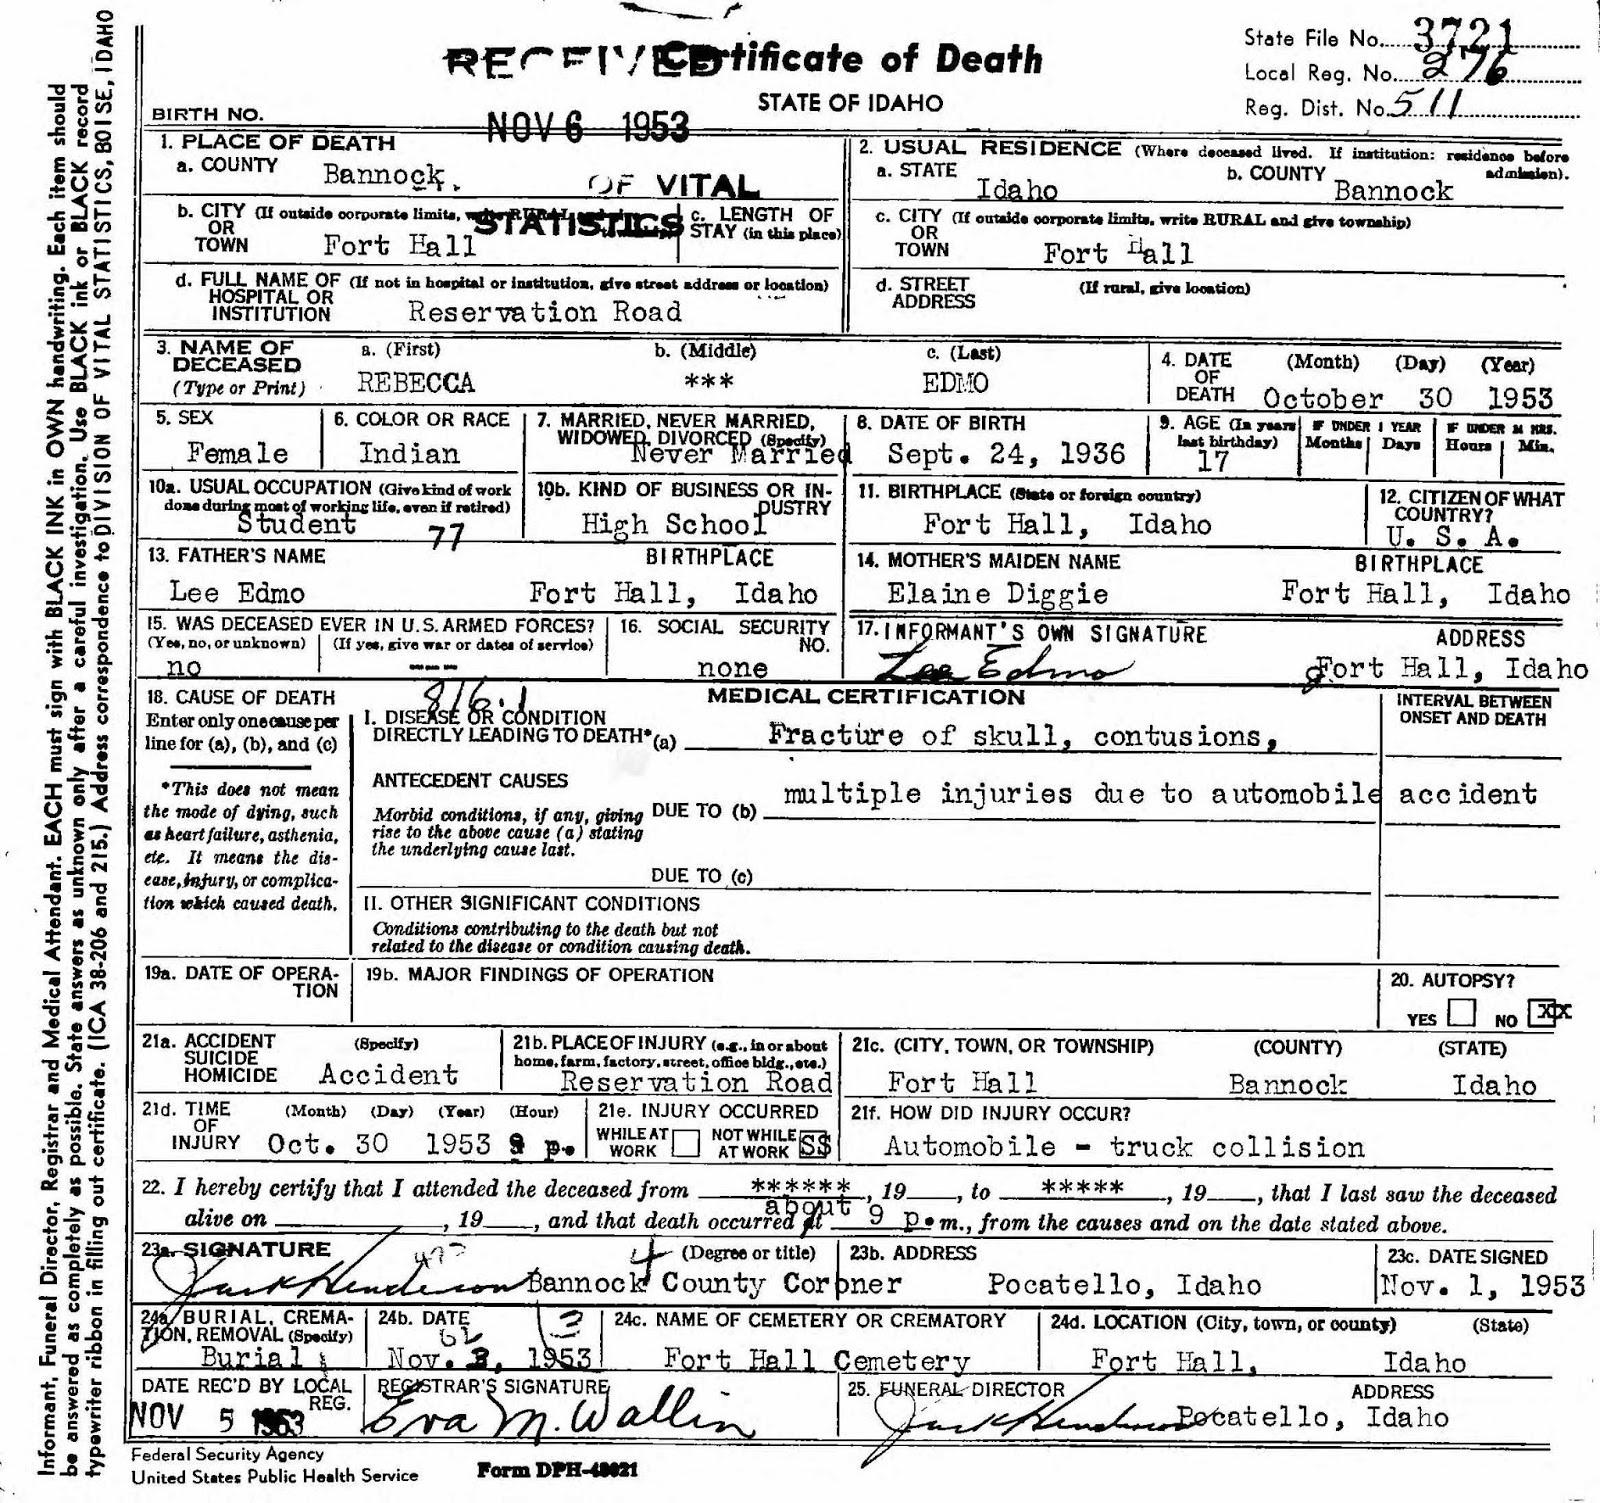 Informant, Funeral Director, Registrar and Medical Attendant. EACH must sign with BLACK INK in OWN handwriting. Each item should
be answered as completely as possible. State answers as unknown only after a careful investigation. Use BLACK ink or BLACK record
typewriter ribbon in filling out certificate. (ICA 38-206 and 215.) Address correspondence to DIVISION OF VITAL STATISTICS, BOISE, IDAHO
RECEIVED
Certificate of Death
STATE OF IDAHO
State File No. 3721
Local Reg. No. 276
Reg. Dist. No. 511
BIRTH NO.
NOV 6 1953
OF VITAL
STATISTICS
1. PLACE OF DEATH
a. COUNTY Bannock.
2. USUAL RESIDENCE (Where deceased lived. If institution: residence before admission).
a. STATE Idaho b. COUNTY Bannock
b. CITY (If outside corporate limits, write RURAL and
OR
TOWN Fort Hall
c. LENGTH OF
STAY (in this place)
c. CITY (If outside corporate limits, write RURAL and give township)
OR
TOWN Fort Hall
d. FULL NAME OF (If not in hospital or institution, give street address or location)
HOSPITAL OR
INSTITUTION Reservation Road
d. STREET (If rural, give location)
ADDRESS
3. NAME OF DECEASED (Type or Print)
a. (First) b. (Middle) c. (Last)
REBECCA *** EDMO
4. DATE OF DEATH (Month) (Day) (Year)
October 30 1953
5. SEX
Female
6. COLOR OR RACE
Indian
7. MARRIED, NEVER MARRIED,
WIDOWED, DIVORCED (Specify)
Never Married
8. DATE OF BIRTH
Sept. 24, 1936
9. AGE (In years last birthday)
17
IF UNDER 1 YEAR
Months Days
IF UNDER 24 HRS.
Hours Min.
10a. USUAL OCCUPATION (Give kind of work
done during most of working life, even if retired)
Student 77
10b. KIND OF BUSINESS OR INDUSTRY
High School
11. BIRTHPLACE (State or foreign country)
Fort Hall, Idaho
12. CITIZEN OF WHAT COUNTRY?
U. S. A.
13. FATHER'S NAME BIRTHPLACE
Lee Edmo Fort Hall, Idaho
14. MOTHER'S MAIDEN NAME BIRTHPLACE
Elaine Diggie Fort Hall, Idaho
15. WAS DECEASED EVER IN U.S. ARMED FORCES?
(Yes, no, or unknown) (If yes, give war or dates of service)
no ---
16. SOCIAL SECURITY NO.
none
17. INFORMANT'S OWN SIGNATURE ADDRESS
Lee Edmo Fort Hall, Idaho
18. CAUSE OF DEATH
Enter only one cause per
line for (a), (b), and (c)
*This does not mean
the mode of dying, such
as heart failure, asthenia,
etc. It means the dis-
ease, injury, or complica-
tion which caused death.
816.1
MEDICAL CERTIFICATION
INTERVAL BETWEEN
ONSET AND DEATH
I. DISEASE OR CONDITION
DIRECTLY LEADING TO DEATH* (a) Fracture of skull, contusions,
ANTECEDENT CAUSES
Morbid conditions, if any, giving
rise to the above cause (a) stating
the underlying cause last.
DUE TO (b) multiple injuries due to automobile accident
DUE TO (c)
II. OTHER SIGNIFICANT CONDITIONS
Conditions contributing to the death but not
related to the disease or condition causing death.
19a. DATE OF OPERA-
TION
19b. MAJOR FINDINGS OF OPERATION
20. AUTOPSY?
YES NO XX
21a. ACCIDENT (Specify)
SUICIDE
HOMICIDE Accident
21b. PLACE OF INJURY (e.g., in or about
home, farm, factory, street, office bldg., etc.)
Reservation Road
21c. (CITY, TOWN, OR TOWNSHIP) (COUNTY) (STATE)
Fort Hall Bannock Idaho
21d. TIME OF INJURY (Month) (Day) (Year) (Hour)
Oct. 30 1953 9 p.
21e. INJURY OCCURRED
WHILE AT WORK NOT WHILE AT WORK S$
21f. HOW DID INJURY OCCUR?
Automobile - truck collision
22. I hereby certify that I attended the deceased from ******, 19, to *****, 19, that I last saw the deceased
alive on , 19, and that death occurred at about 9 p.m., from the causes and on the date stated above.
23a. SIGNATURE (Degree or title)
Jack Henderson Bannock County Coroner
4
23b. ADDRESS
Pocatello, Idaho
23c. DATE SIGNED
Nov. 1, 1953
24a. BURIAL, CREMA-
TION, REMOVAL (Specify)
Burial
24b. DATE
Nov. 3, 1953
24c. NAME OF CEMETERY OR CREMATORY
Fort Hall Cemetery
24d. LOCATION (City, town, or county) (State)
Fort Hall, Idaho
DATE REC'D BY LOCAL REG.
NOV 5 1953
REGISTRAR'S SIGNATURE
Eva M. Wallin
25. FUNERAL DIRECTOR ADDRESS
Jack Henderson Pocatello, Idaho
Federal Security Agency
United States Public Health Service
Form DPH-48021